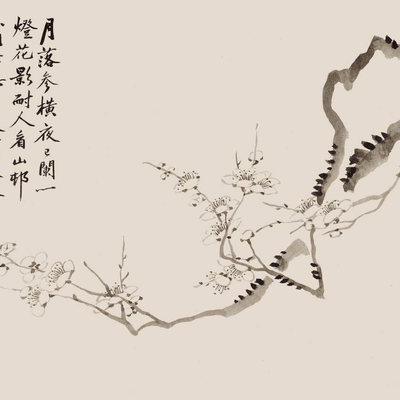 月落参横夜已阑一
燈花影耐人看山邨